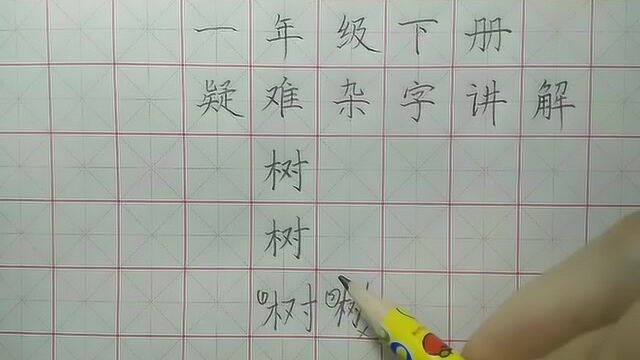 一年级下册
疑难杂字讲解
树
树
①树 ②树